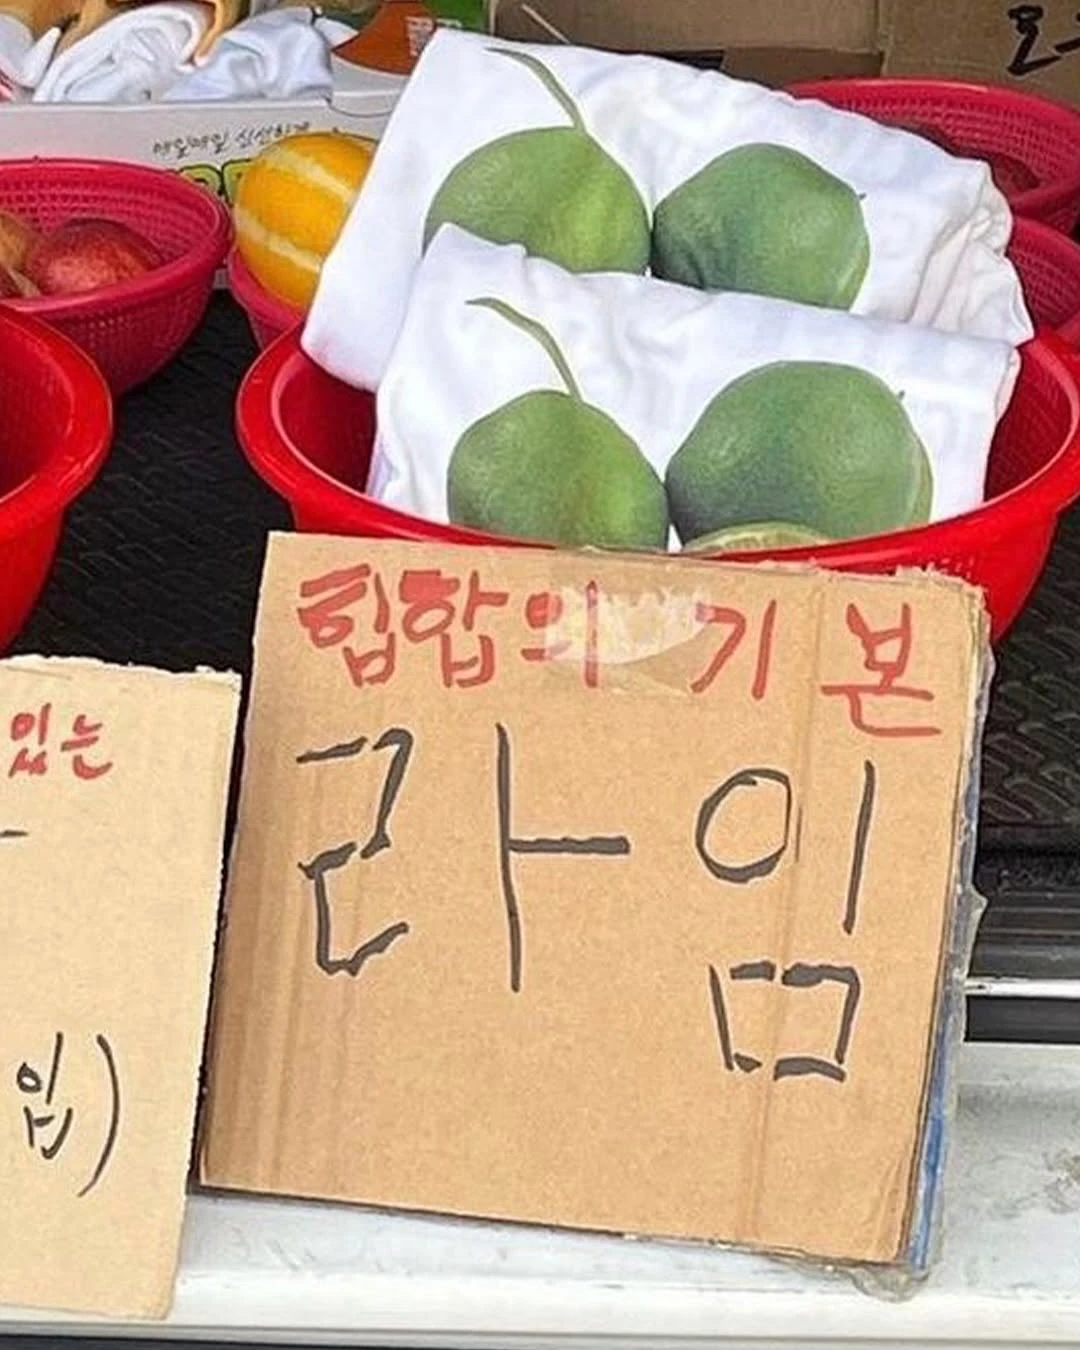 매일매일 신선하게
힙합의 기본
라임
있는
입)